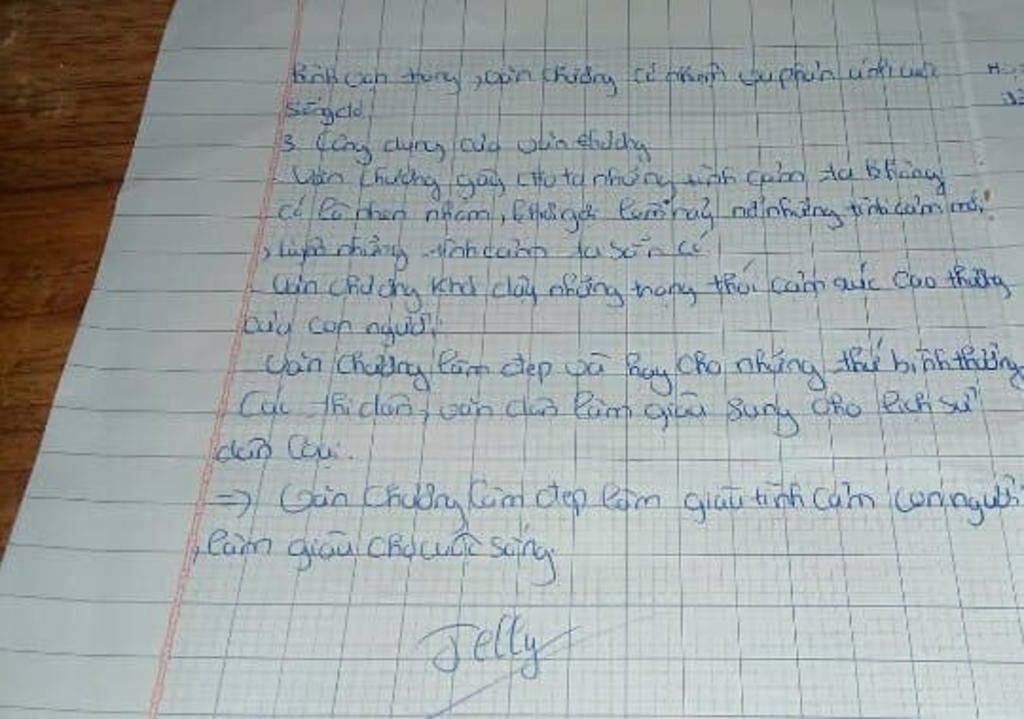 hình dạng, văn chương có nhiệm vụ phản ánh cuộc
sống đó
3. Công dụng của văn chương
- Văn chương gây cho ta những tình cảm ta không
có là nhen nhóm, khơi gợi làm nảy nở những tình cảm mới
, luyện những tình cảm ta sẵn có
- Văn chương khơi dậy những trạng thái cảm xúc cao thượng
của con người
Văn chương làm đẹp và hay cho những thứ bình thường
Các thi dân, văn dân làm giàu sang cho lịch sử
dân loại.
=> Văn chương làm đẹp làm giàu tình cảm con người
, làm giàu cho cuộc sống
Jelly